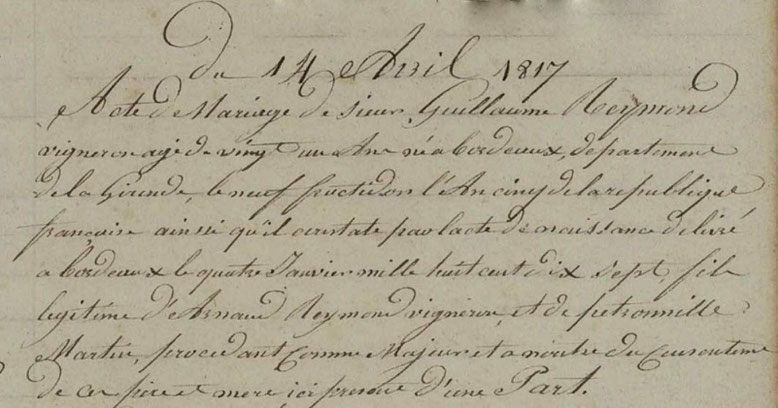 Du 14 Avril 1817
Acte de Mariage de sieur Guillaume Reymond
vigneron agé de vingt un Ans né a bordeaux, departement
de la Gironde, le neuf fructidor l'An cinq de la republique
françoise ainsi qu'il constate par l'acte de naissance delivré
a bordeaux le quatre Janvier mille huit cent dix sept, fils
legitime d'Arnaud Reymond vigneron, et de petronnille
Martin, procedant Comme Majeur et a du Consenteme
de ces pere et mere, ici presant d'une Part.